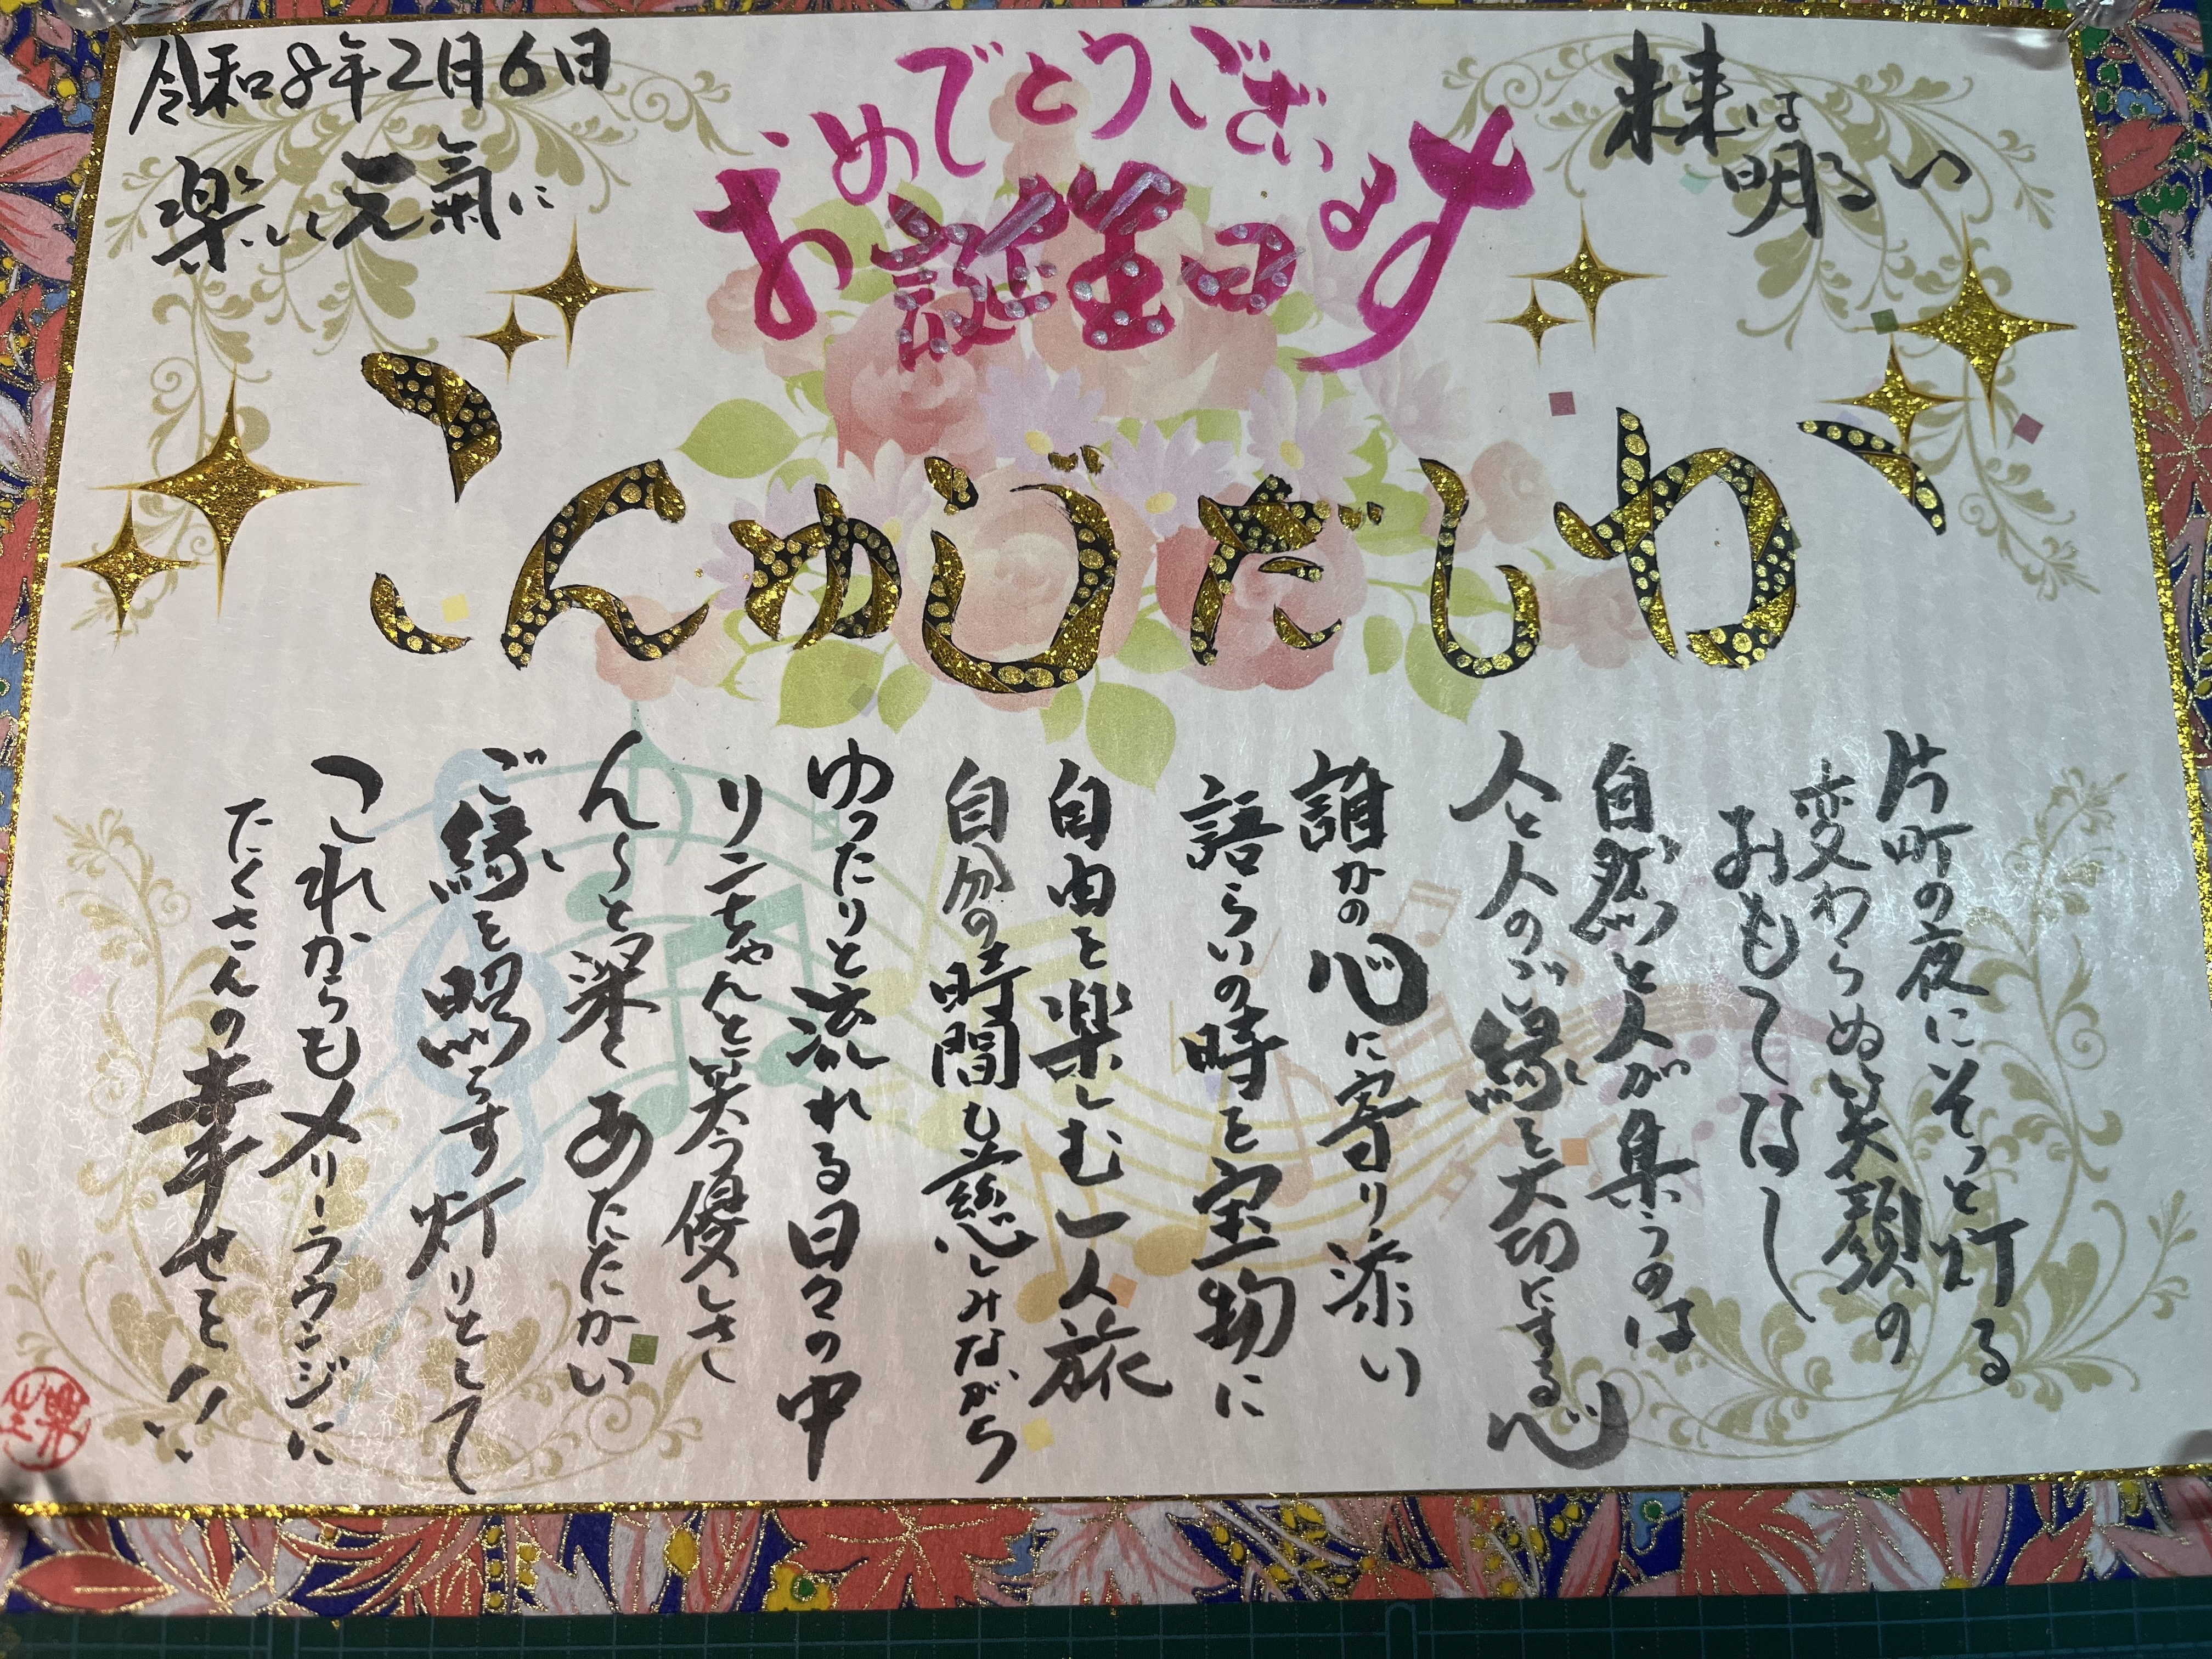 未来は
明るい
おめでとうございます
お誕生日
令和8年2月6日
楽しく元氣に
かしだじゅんご
片町の夜にそっと灯る
変わらぬ笑顔の
おもてなし
自然と人が集うのは
人と人のご縁を大切にする心
誰かの心に寄り添い
語らいの時を宝物に
自由を楽しむ一人旅
自分の時間も慈しみながら
ゆったりと流れる日々の中
ちゃんと笑う優しさ
ん〜と深くあたたかい
ご縁を照らす灯りとして
これからもメリーラウンジに
たくさんの幸せを!!